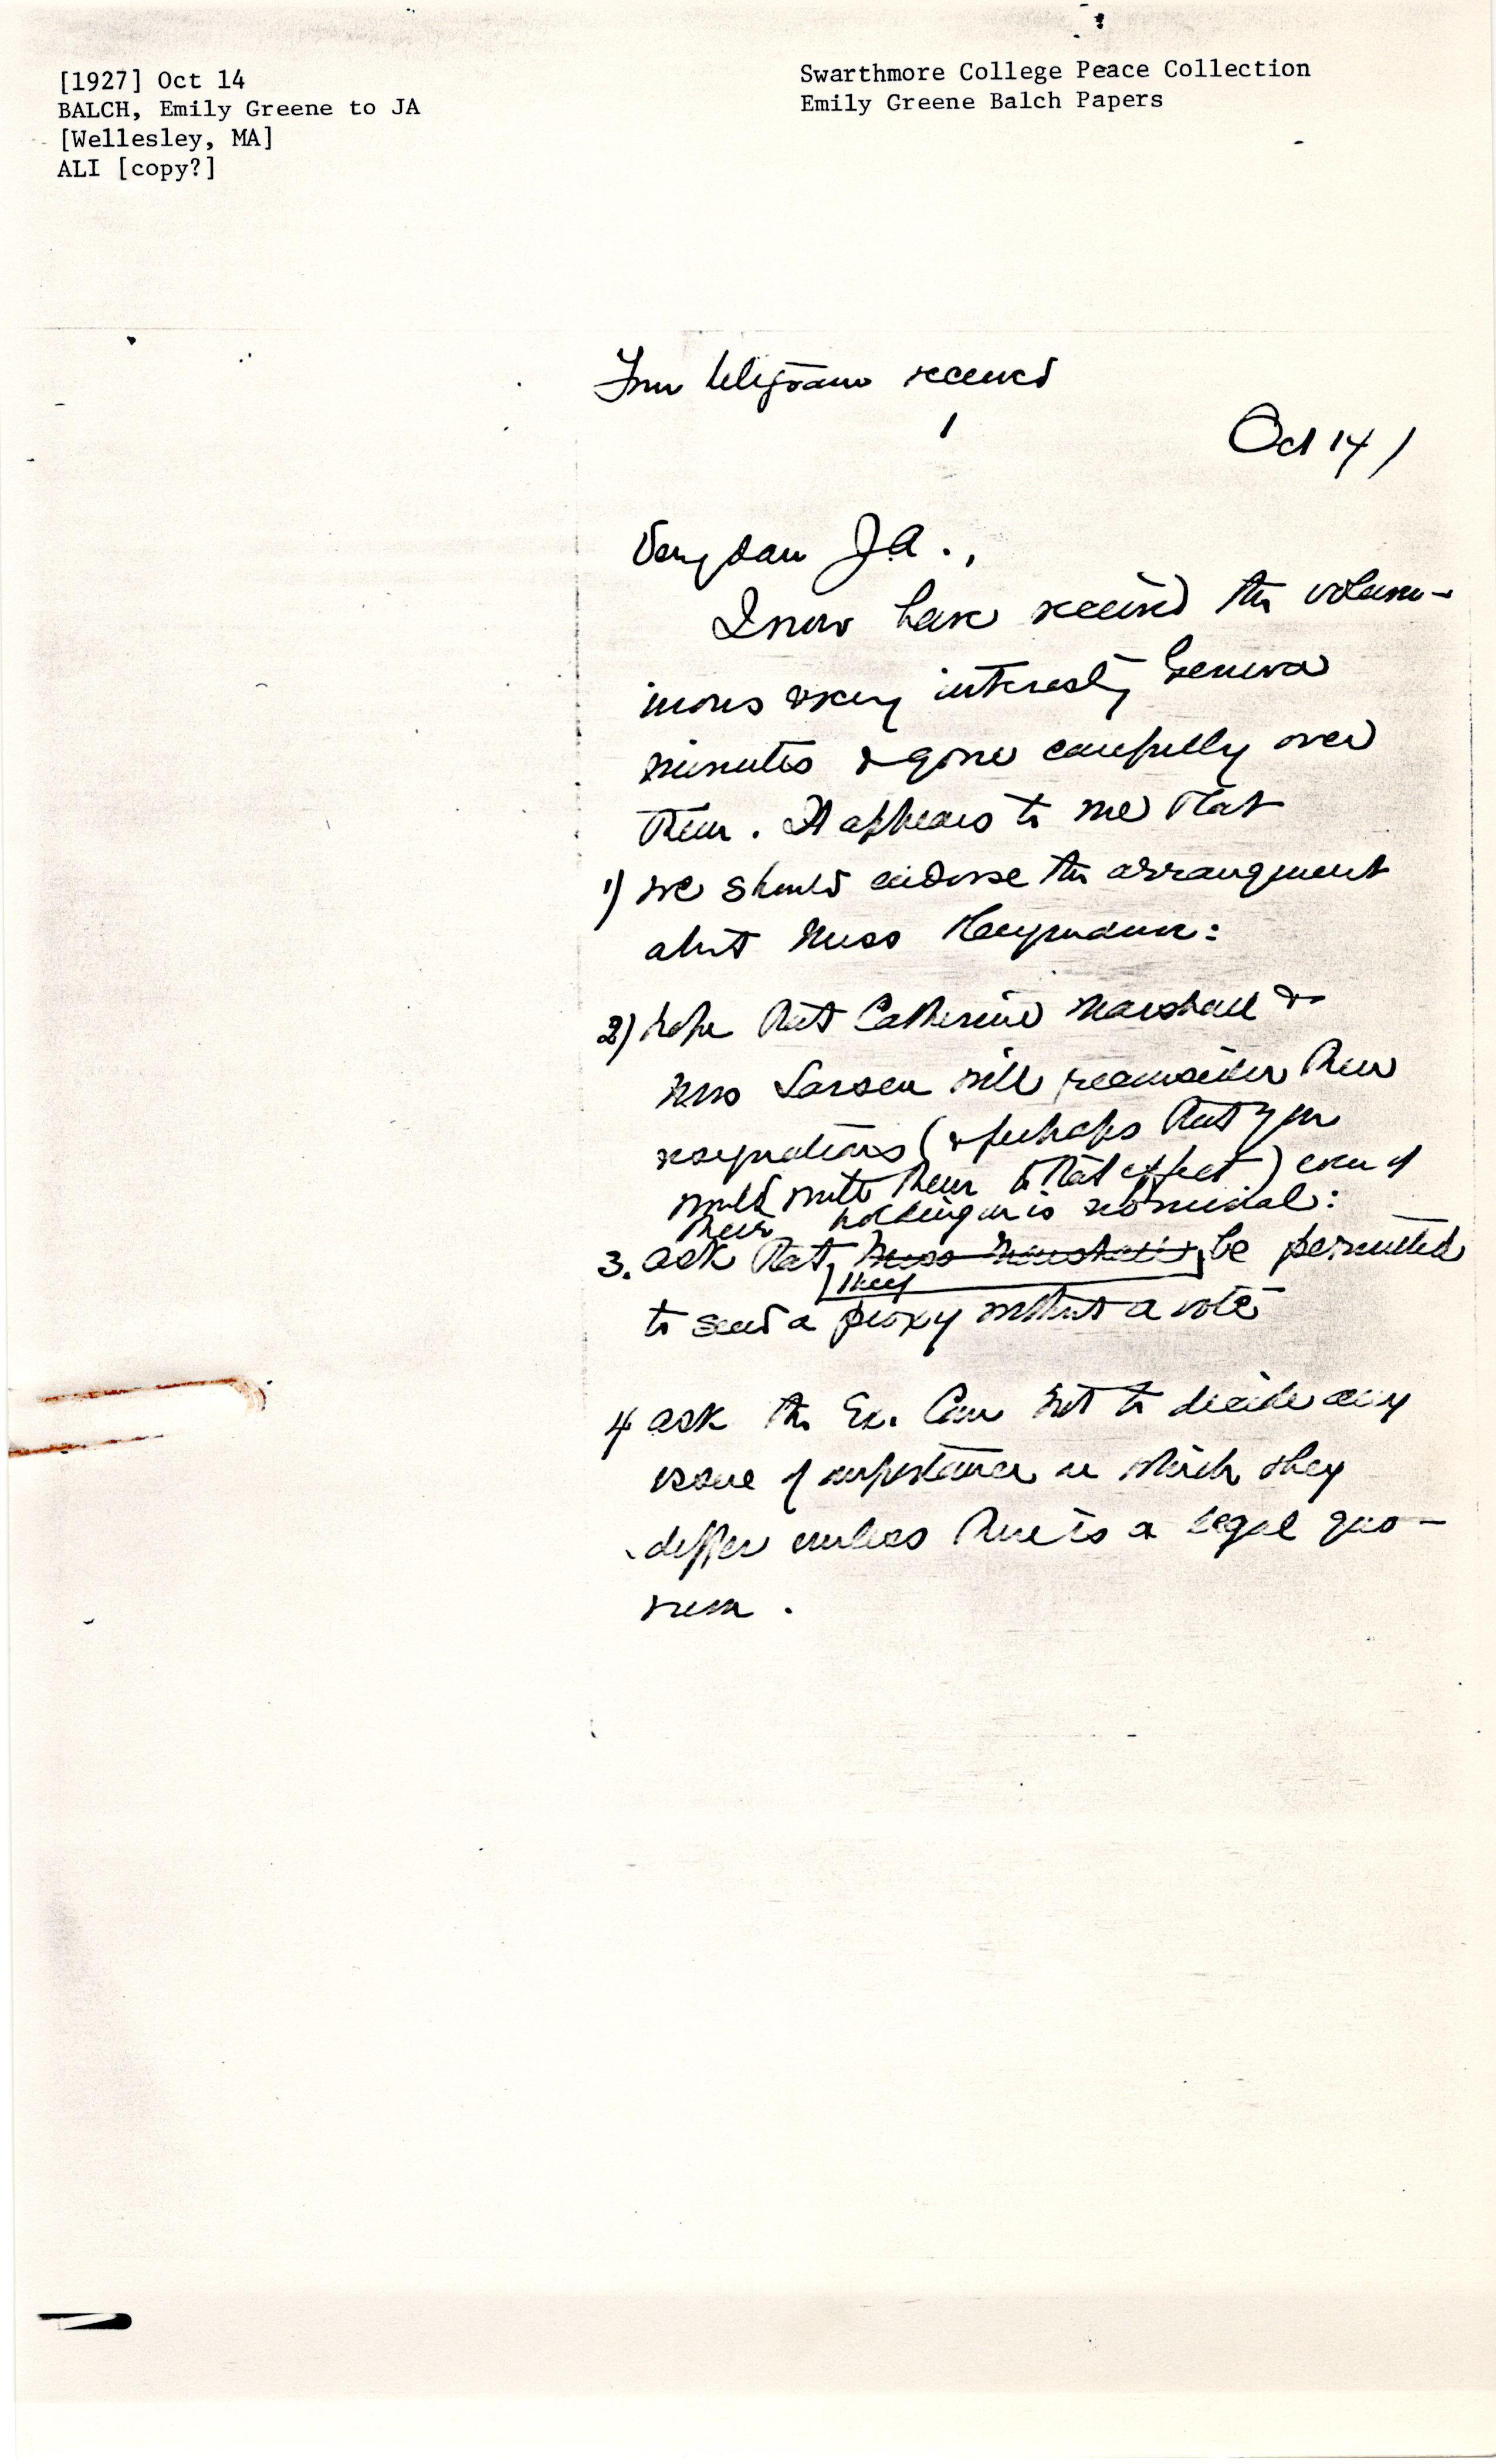 [1927] Oct 14
BALCH, Emily Greene to JA
[Wellesley, MA]
ALI [copy?]
Swarthmore College Peace Collection
Emily Greene Balch Papers
Your telegram received
Oct 14
Very dear JA.,
I now have received the volum-
inous & very interesting Geneva
minutes & gone carefully over
them. It appears to me that
1) we should endorse the arrangment
about Miss Heymann:
2) hope that Catherine Marshall &
Mrs Larsen will reconsider their
resignations (& perhaps that you
would write them to that effect) even if
their holding on is nominal:
3. ask that they Miss Marshall be permitted
to send a proxy without a vote
4 ask the Ex. Com not to decide any
issue of importance on which they
differ unless there is a legal quo-
rum.